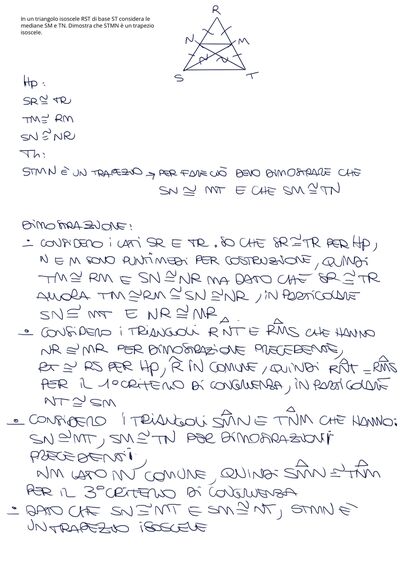 In un triangolo isoscele RST di base ST considera le
mediane SM e TN. Dimostra che STMN è un trapezio
isoscele.
R
N
M
S
T
Hp:
SR ≅ TR
TM ≅ RM
SN ≅ NR
Th:
STMN È UN TRAPEZIO → PER FARE CIÒ DEVO DIMOSTRARE CHE
SN ≅ MT E CHE SM ≅ TN
DIMOSTRAZIONE:
• CONSIDERO I LATI SR E TR. SO CHE SR ≅ TR PER HP,
N E M SONO PUNTI MEDI PER COSTRUZIONE, QUINDI
TM ≅ RM E SN ≅ NR MA DATO CHE SR ≅ TR
ALLORA TM ≅ RM ≅ SN ≅ NR, IN PARTICOLARE
SN ≅ MT E NR ≅ MR.
• CONSIDERO I TRIANGOLI RNT E RMS CHE HANNO
NR ≅ MR PER DIMOSTRAZIONE PRECEDENTE,
RT ≅ RS PER HP, R̂ IN COMUNE, QUINDI RNT ≅ RMS
PER IL 1° CRITERIO DI CONGRUENZA, IN PARTICOLARE
NT ≅ SM
• CONSIDERO I TRIANGOLI SMN E TNM CHE HANNO:
SN ≅ MT, SM ≅ TN PER DIMOSTRAZIONI
PRECEDENTI,
NM LATO IN COMUNE, QUINDI SMN ≅ TNM
PER IL 3° CRITERIO DI CONGRUENZA
• DATO CHE SN ≅ MT E SM ≅ NT, STMN È
UN TRAPEZIO ISOSCELE